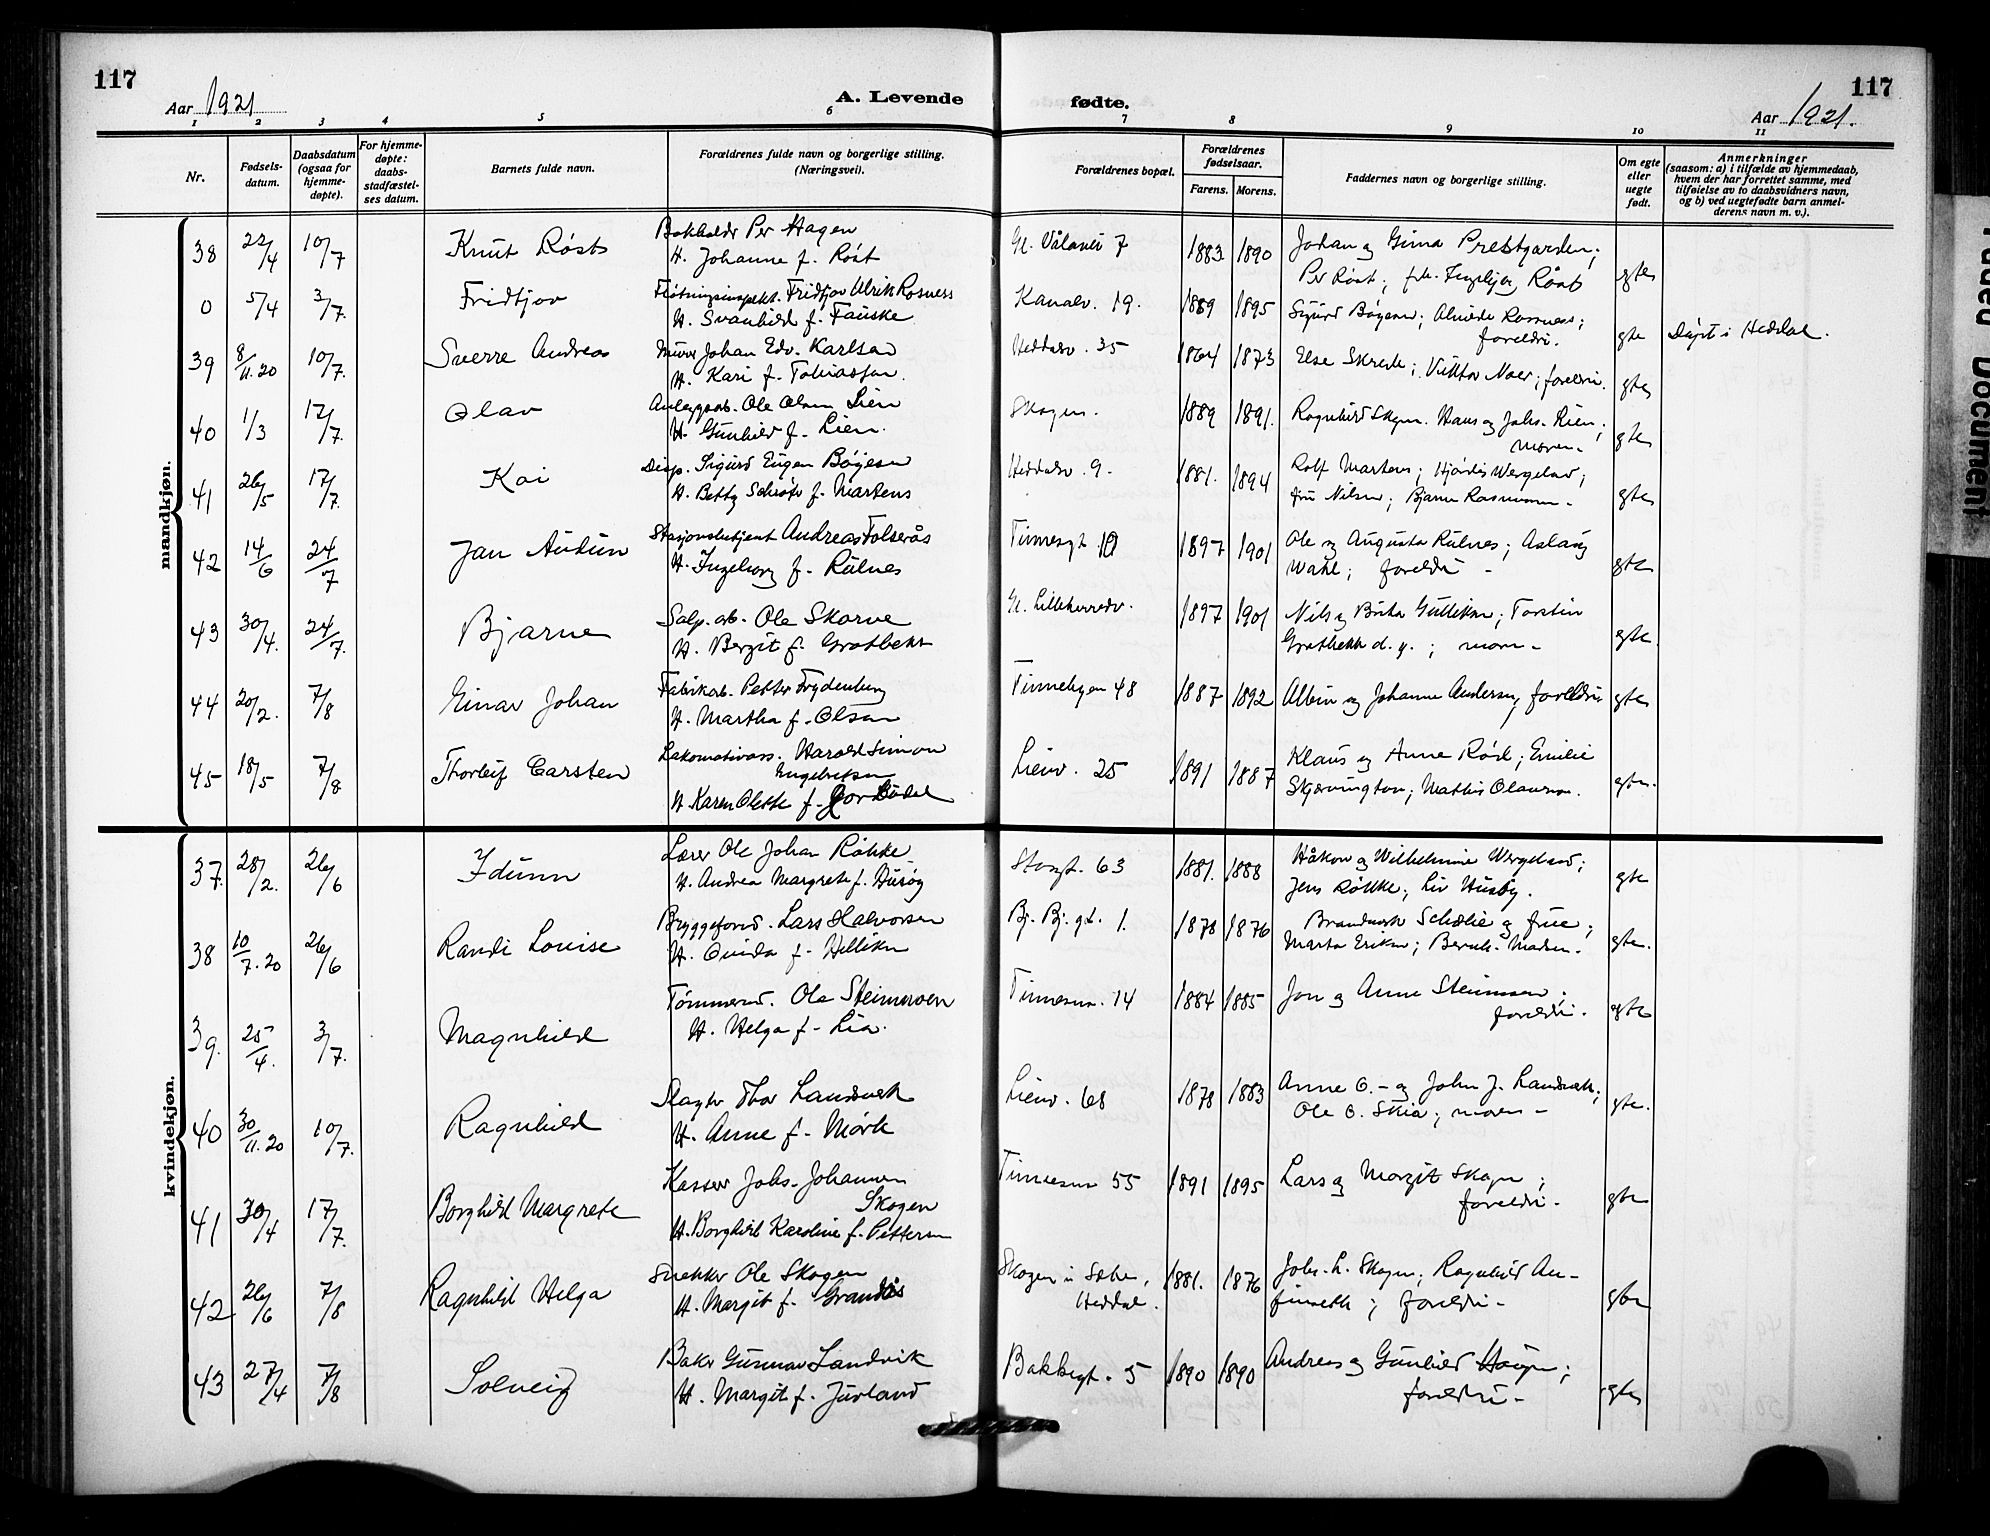 117
Aar 1921
A. Levende
fødte.
Aar 1921.
117
1 2 3 4 5 6 7 8 9 10 11
Nr.
Fødsels-
datum.
Daabsdatum
(ogsaa for
hjemme-
døpte).
For hjemme-
døpte:
daabs-
stadfæstel-
ses datum.
Barnets fulde navn.
Forældrenes fulde navn og borgerlige stilling.
(Næringsvei).
Forældrenes bopæl.
Forældrenes
fødselsaar.
Farens. Morens.
Faddernes navn og borgerlige stilling.
Om egte
eller
uegte
født.
Anmerkninger
(saasom: a) i tilfælde av hjemmedaab,
hvem der har forrettet samme, med
tilføielse av to daabsvidners navn,
og b) ved uegtefødte barn anmel-
derens navn m. v.).
mandkjøn.
38 22/4 10/7 Knut Røst Bokholder Per Hagen Gl. Vålavei 7 1883 1890 Johan og Gina Prestgarden; egte
H. Johanne f. Røst Per Røst; Ingebjørg Røst
0 5/4 3/7. Fridtjov Fløtningsinspekt. Fridtjov Ulrik Rosness Kanalv. 19. 1889 1895 Sigurd Bøyesen; Rosness; egte Døpt i Heddal.
H. Svanhild f. Fauske foreldri.
39 8/11.20 10/7. Sverre Andreas Murer Johan Edv. Karlsen Heddalsv. 35 1864 1873 Else Skrede; Viktor Noer; foreldri. egte
H. Kari f. Tobiassen.
40 1/3 17/7. Olav Anleggsarb. Ole Olsen Lien Skogen. 1889 1891. Ragnhild Skogen. Hans og Johs. Lien; egte
H. Gunhild f. Lien. moren.
41 26/5 17/7. Kai Disp. Sigurd Eugen Bøyesen Heddalsv. 9. 1881. 1894 Rolf Martens; Hjørdis Wergeland; egte
H. Betty Schrøter f. Martens fru Nilsen; Bjarne Rasmussen.
42 14/6 24/7 Jan Audun Stasjonsbetjent Andreas Folserås Tinnesgt 19 1897 1901 Ole og Augusta Rulnes; Aslaug egte
H. Ingeborg f. Rulnes Wahl; foreldri -
43 30/4. 24/7. Bjarne Salp. arb. Ole Skarve Gl. Lilleherredv. 1897 1901 Nils og Birte Gulliksen; Torstein egte
H. Bergit f. Grotbekk Grotbekk d. y.; moren -
44 20/2. 7/8 Einar Johan Fabrikarb. Petter Frydenberg Tinnebyen 48 1887 1892 Albin og Johanne Andersen, foreldri egte
H. Martha f. Olsen
45 18/5 7/8 Thorleif Carsten Lokomotivass. Harald Simon Lienv. 25 1891 1887 Klaus og Anne Rød; Emilie egte.
Engebretsen Skjervington; Mathis Olaussen.
H. Karen Olette f.
kvindekjøn.
37. 28/2. 26/6 Idunn Lærer Ole Johan Røkke Storgt. 63 1881. 1888 Håkon og Wilhelmine Wergeland; egte
H. Andrea Margrete f. Husøy Jens Røkke; Liv Husby.
38 10/7.20 26/6 Randi Louise Bryggeform. Lars Halvorsen Bj. Bj. gt. 1. 1878 1876 Brandmest Schølie og frue; egte.
H. Ovida f. Helliksen Marta Eriksen; Bernh. Madsen.
39. 25/4. 3/7. Magnhild Tømmerm. Ole Steimoeen Tinnesm. 14 1884 1885 Jon og Anne Steinmoen; egte
H. Helga f. Lia. foreldri.
40 30/11.20 10/7. Ragnhild Slagter Thor Landverk Lienv. 68 1878 1883 Anne O. - og John J. Landverk; egte.
H. Anne f. Mørk Ole O. Skia; moren -
41 30/4 17/7. Borghild Margrete Kasserer Johs. Johannsen Tinnesm 55 1891 1895 Lars og Margit Skogen; egte
Skogen foreldri.
H. Borghild Karoline f. Pettersen
42 26/6 7/8 Ragnhild Helga Snekker Ole Skogen Skogen i Setre, 1881. 1876 Johs. L. Skogen; Ragnhild An- egte
H. Margit f. Grandås Heddal. finseth; foreldri.
43 27/4 7/8 Solveig Baker Gunnar Landvik Bakkegt. 5 1890 1890 Andreas og Gunhild Haugen; egte
H. Margit f. Juvland foreldri -
Tilded Document